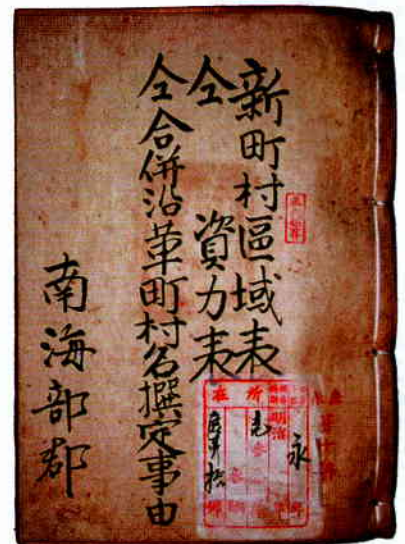 新町村區域表
仝 資力表
仝合併沿革町村名撰定事由
南海部郡
所在
明治
永